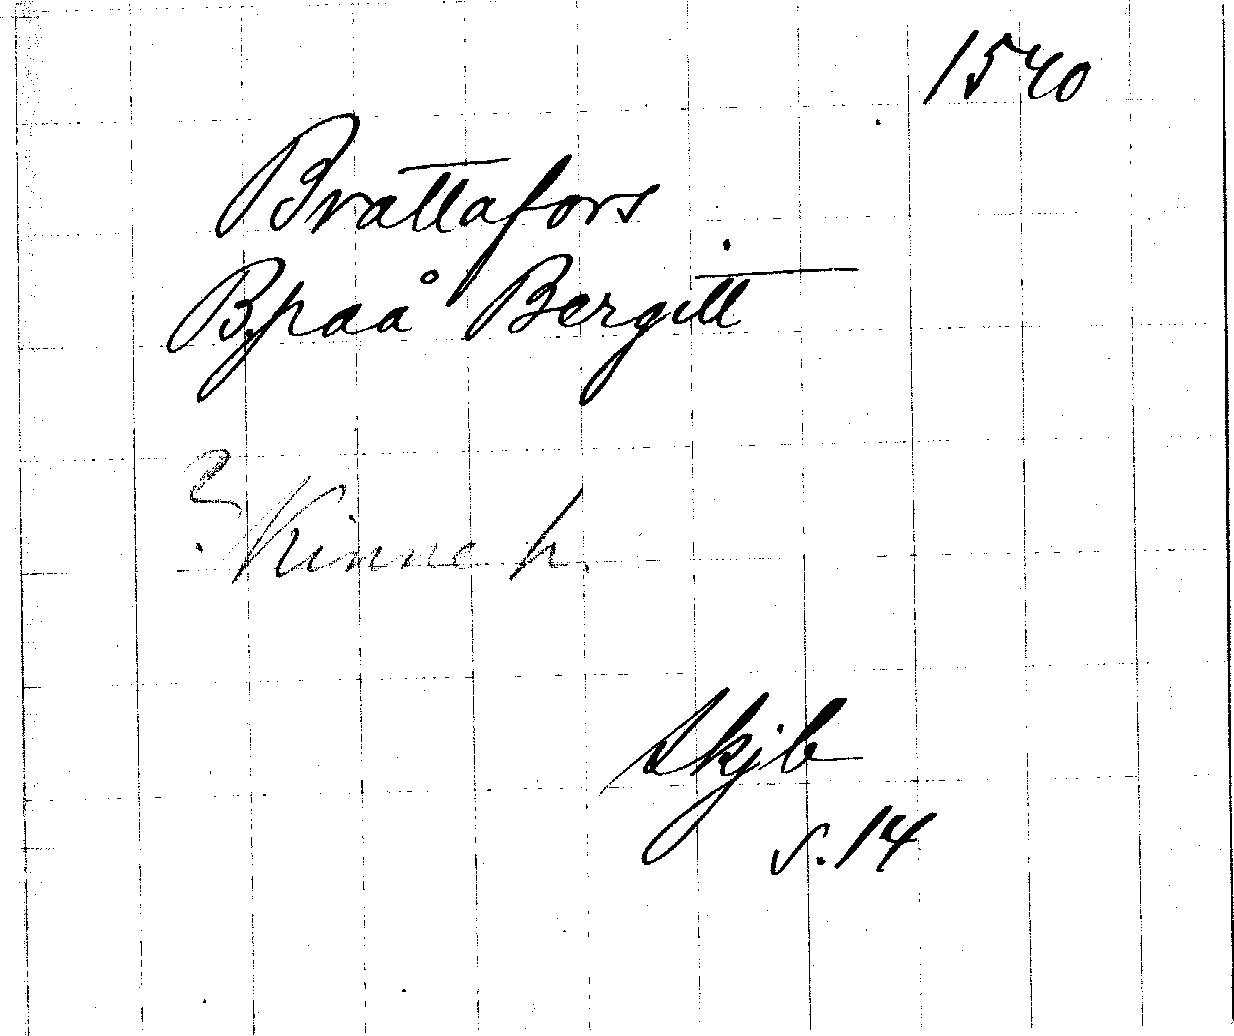 1540
Brattafors
Bpaå Bergitt
? Kinne h.
Skjb
s. 14